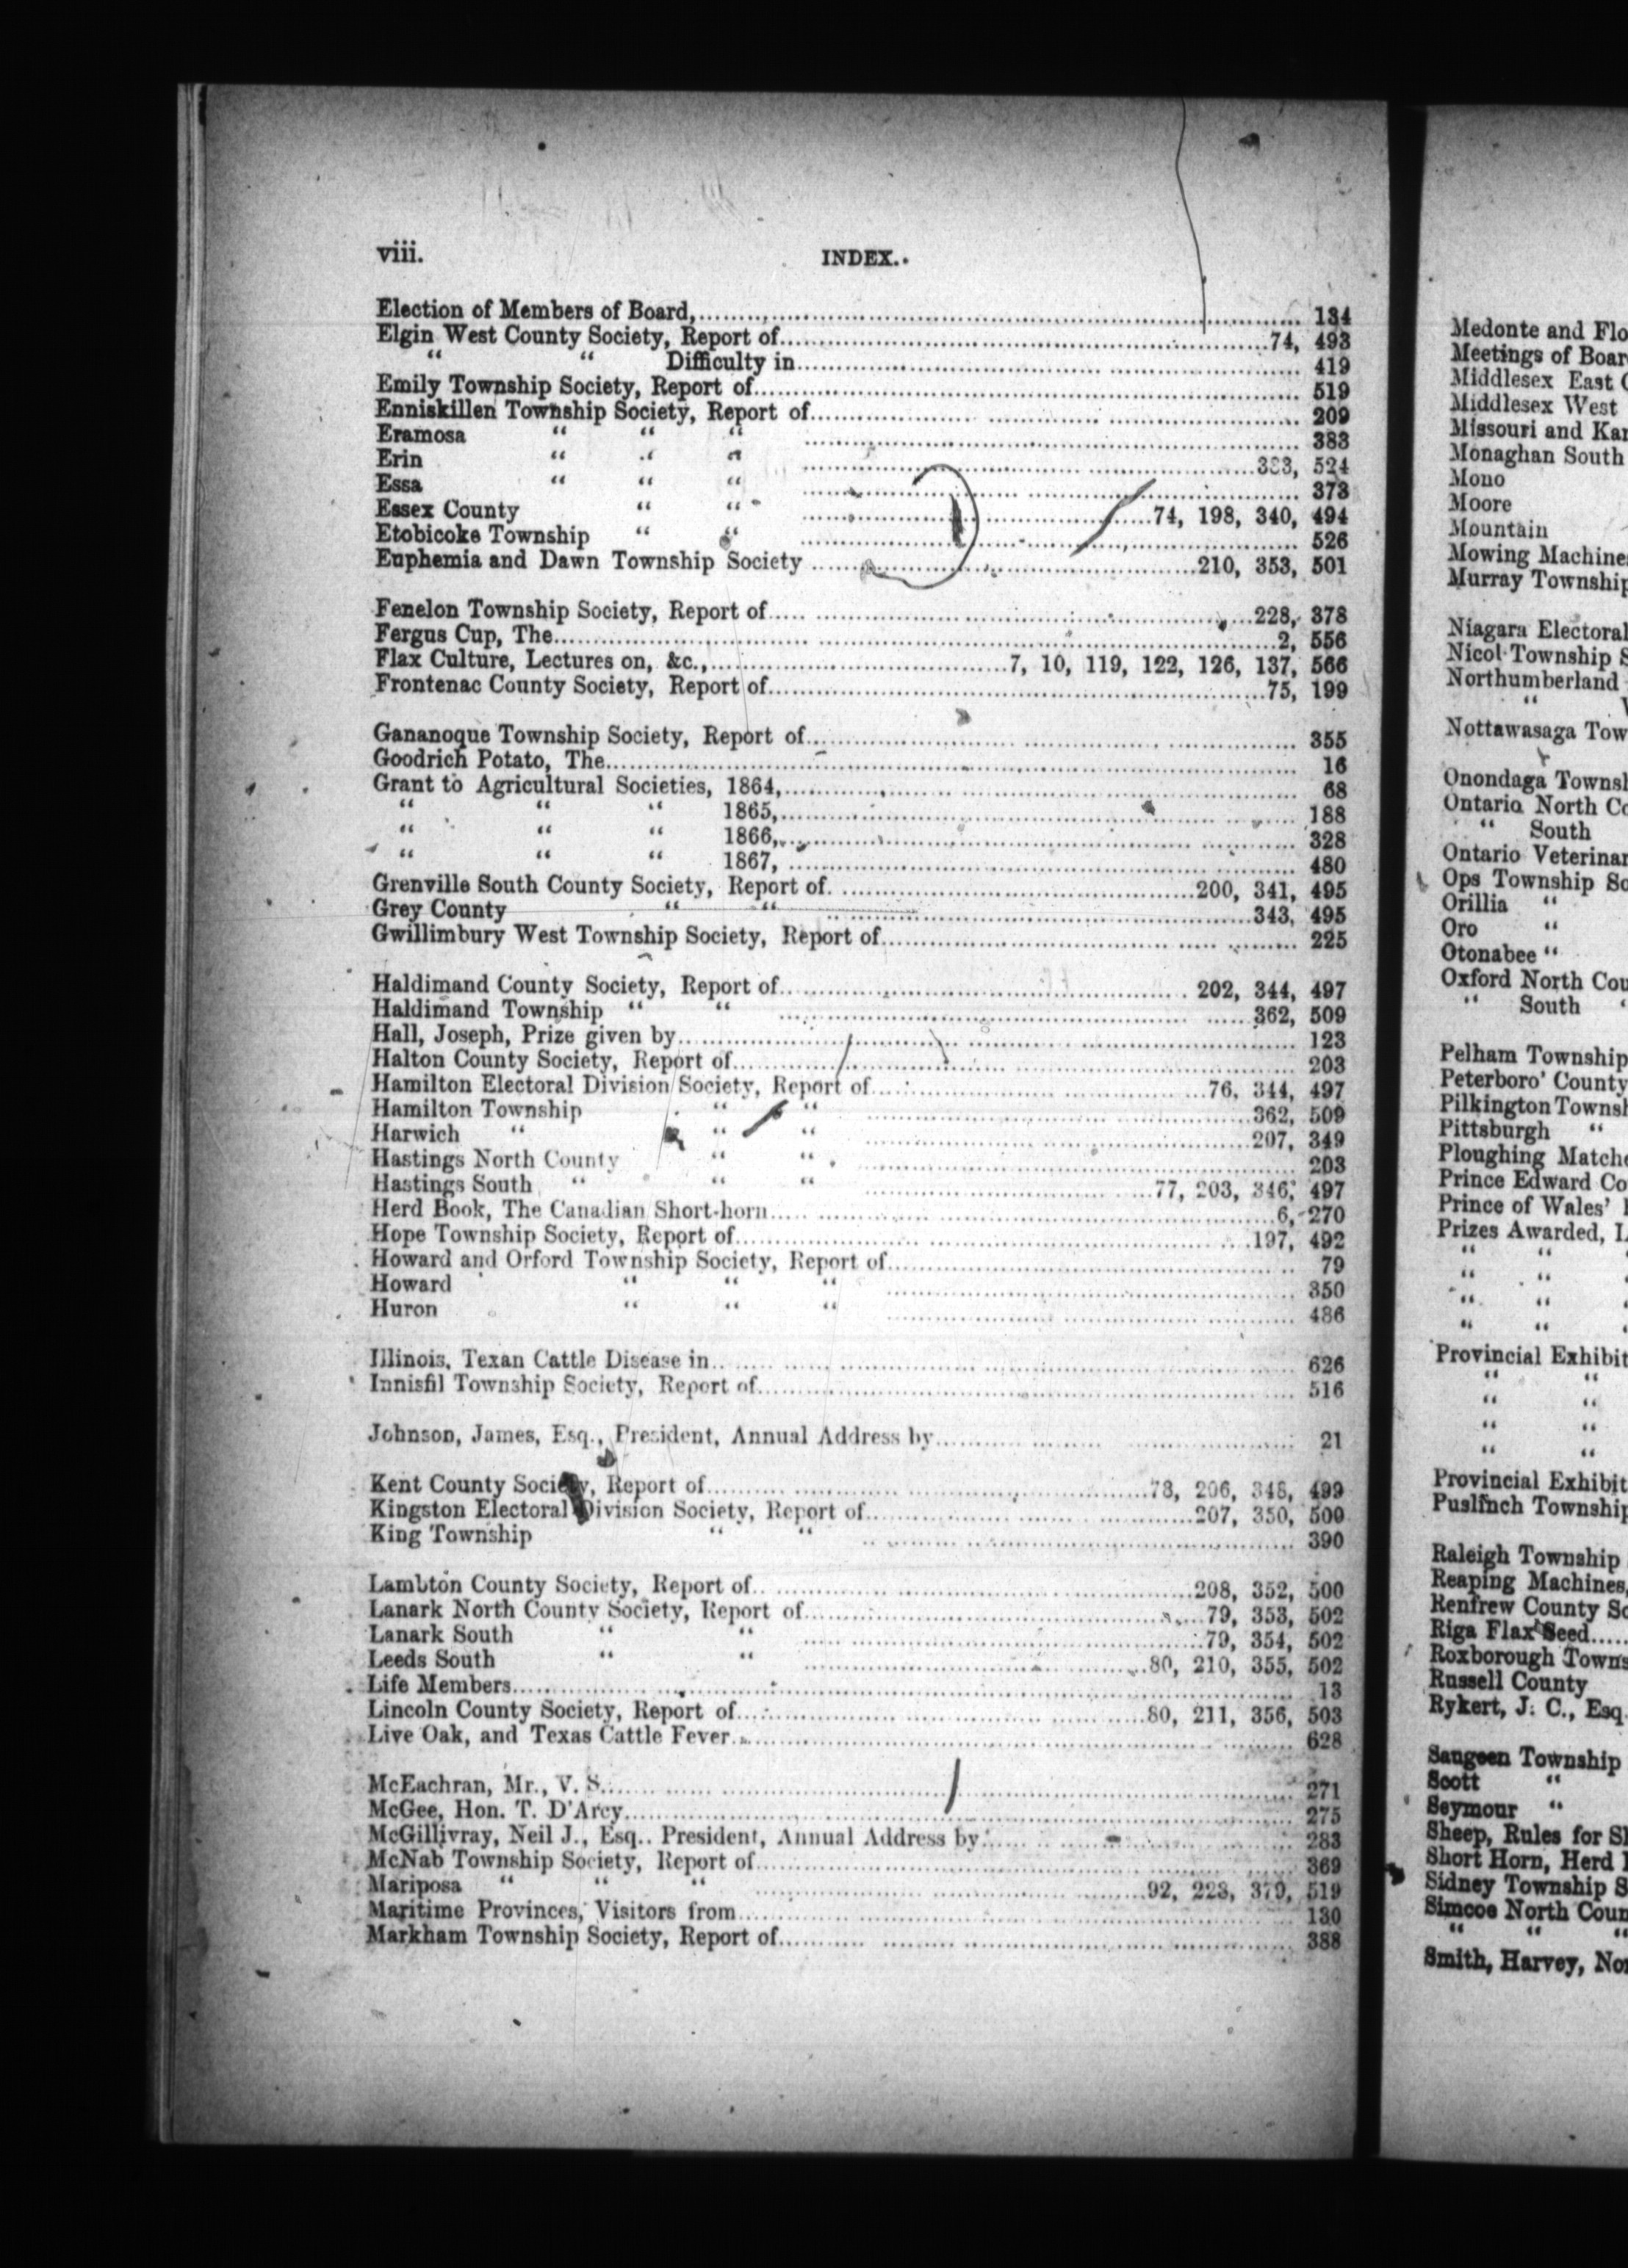 viii.
INDEX.
Election of Members of Board,.................... 134
Elgin West County Society, Report of....................74, 493
“ “ Difficulty in.................... 419
Emily Township Society, Report of.................... 519
Enniskillen Township Society, Report of.................... 209
Eramosa “ “ “ .................... 383
Erin “ “ “ ....................383, 524
Essa “ “ “ .................... 373
Essex County “ “ ....................74, 198, 340, 494
Etobicoke Township “ “ .................... 526
Euphemia and Dawn Township Society ....................210, 353, 501
Fenelon Township Society, Report of....................228, 378
Fergus Cup, The....................2, 556
Flax Culture, Lectures on, &c.,....................7, 10, 119, 122, 126, 137, 566
Frontenac County Society, Report of....................75, 199
Gananoque Township Society, Report of.................... 355
Goodrich Potato, The.................... 16
Grant to Agricultural Societies, 1864,.................... 68
“ “ “ 1865,.................... 188
“ “ “ 1866,.................... 328
“ “ “ 1867, .................... 480
Grenville South County Society, Report of....................200, 341, 495
Grey County “ “ ....................343, 495
Gwillimbury West Township Society, Report of.................... 225
Haldimand County Society, Report of.................... 202, 344, 497
Haldimand Township “ “ ....................362, 509
Hall, Joseph, Prize given by.................... 123
Halton County Society, Report of.................... 203
Hamilton Electoral Division Society, Report of....................76, 344, 497
Hamilton Township “ “ ....................362, 509
Harwich “ “ “ ....................207, 349
Hastings North County “ “ .................... 203
Hastings South “ “ “ ....................77, 203, 346, 497
Herd Book, The Canadian Short-horn....................6, 270
Hope Township Society, Report of....................197, 492
Howard and Orford Township Society, Report of.................... 79
Howard “ “ “ .................... 350
Huron “ “ “ .................... 486
Illinois, Texan Cattle Disease in.................... 626
Innisfil Township Society, Report of.................... 516
Johnson, James, Esq., President, Annual Address by.................... 21
Kent County Society, Report of....................78, 206, 348, 499
Kingston Electoral Division Society, Report of....................207, 350, 500
King Township “ “ .................... 390
Lambton County Society, Report of....................208, 352, 500
Lanark North County Society, Report of....................79, 353, 502
Lanark South “ “ ....................79, 354, 502
Leeds South “ “ ....................80, 210, 355, 502
Life Members.................... 13
Lincoln County Society, Report of....................80, 211, 356, 503
Live Oak, and Texas Cattle Fever.................... 628
McEachran, Mr., V. S.................... 271
McGee, Hon. T. D'Arcy.................... 275
McGillivray, Neil J., Esq., President, Annual Address by.................... 283
McNab Township Society, Report of.................... 369
Mariposa “ “ “ ....................92, 223, 379, 519
Maritime Provinces, Visitors from.................... 130
Markham Township Society, Report of.................... 388
Medonte and Flo
Meetings of Boar
Middlesex East
Middlesex West
Missouri and Kan
Monaghan South
Mono
Moore
Mountain
Mowing Machines
Murray Township
Niagara Electoral
Nicol Township S
Northumberland
“
Nottawasaga Tow
Onondaga Townsh
Ontario North Co
“ South
Ontario Veterinar
Ops Township So
Orillia “
Oro “
Otonabee “
Oxford North Cou
“ South “
Pelham Township
Peterboro' County
Pilkington Townsh
Pittsburgh “
Ploughing Matche
Prince Edward Co
Prince of Wales'
Prizes Awarded,
“ “
“ “
“ “
“ “
Provincial Exhibit
“ “
“ “
“ “
“ “
Provincial Exhibit
Puslinch Township
Raleigh Township
Reaping Machines,
Renfrew County So
Riga Flax Seed.....
Roxborough Towns
Russell County
Rykert, J. C., Esq
Saugeen Township
Scott “
Seymour “
Sheep, Rules for Sh
Short Horn, Herd
Sidney Township S
Simcoe North Coun
“ “ “
Smith, Harvey, No